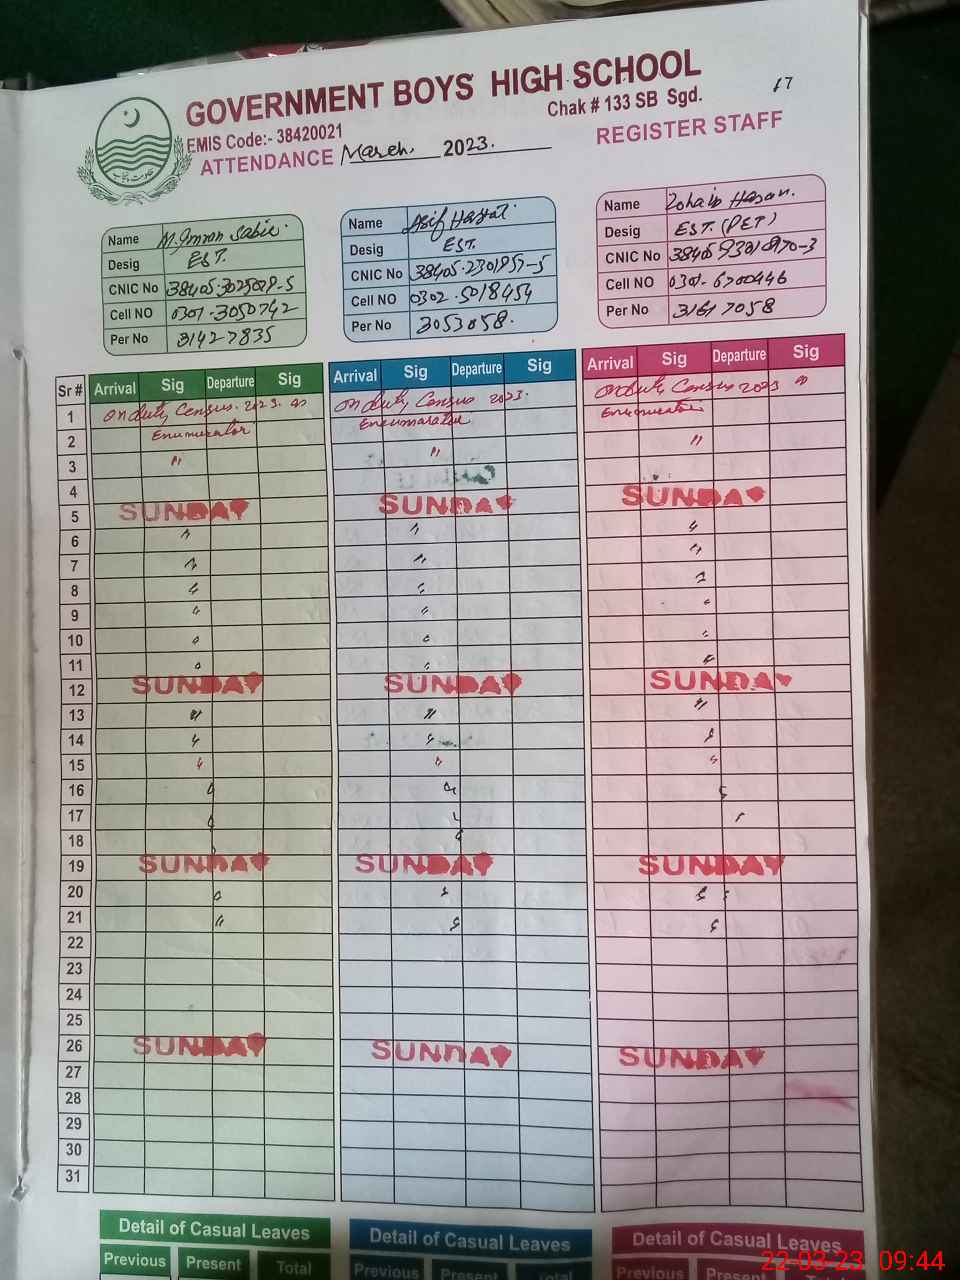 GOVERNMENT BOYS HIGH SCHOOL
Chak # 133 SB Sgd.
17
EMIS Code:- 38420021
ATTENDANCE March. 2023. REGISTER STAFF
حکومت پنجاب
Name M. Imran Sabir.
Desig EST.
CNIC No
Cell NO 0301-3050742
Per No 31427835
Name Asif Hayat
Desig EST.
CNIC No 38405-2301957-5
Cell NO 0302-5018454
Per No 3053058.
Name Zohaib Hasan.
Desig EST. (PET)
CNIC No
Cell NO 0301-6700446
Per No 31617058
Sr # Arrival Sig Departure Sig Arrival Sig Departure Sig Arrival Sig Departure Sig
1 on duty Census. 2023. as on duty Census 2023. on duty Census 2023 as
Enumerator Enumarator Enumerator
2 "
3 " "
4
5 SUNDAY SUNDAY SUNDAY
6 " " "
7 " " "
8 " " "
9 " " "
10 " " "
11 " " "
12 SUNDAY SUNDAY SUNDAY
13 " " "
14 " " "
15 " " "
16 " " "
17 " " "
18 " "
19 SUNDAY SUNDAY SUNDAY
20 " " "
21 " " "
22
23
24
25
26 SUNDAY SUNDAY SUNDAY
27
28
29
30
31
Detail of Casual Leaves Detail of Casual Leaves Detail of Casual Leaves
Previous Present Total Previous Present Total Previous Present
22-03-23 09:44